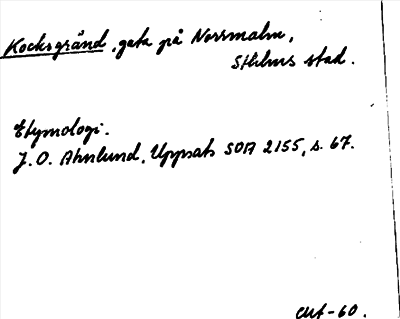 Kocksgränd, gata på Norrmalm,
Sthlms stad.
Etymologi.
J. O. Ahnlund, Uppsats SOA 2155, s. 67.
-60.